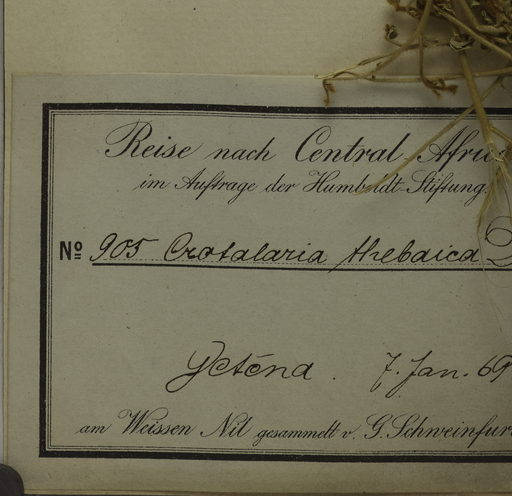 Reise nach Central-Afric
im Auftrage der Humboldt-Stiftung.
No 905 Crotalaria thebaica D
Geténa. 7. Jan. 69
am Weissen Nil gesammelt v. G. Schweinfur